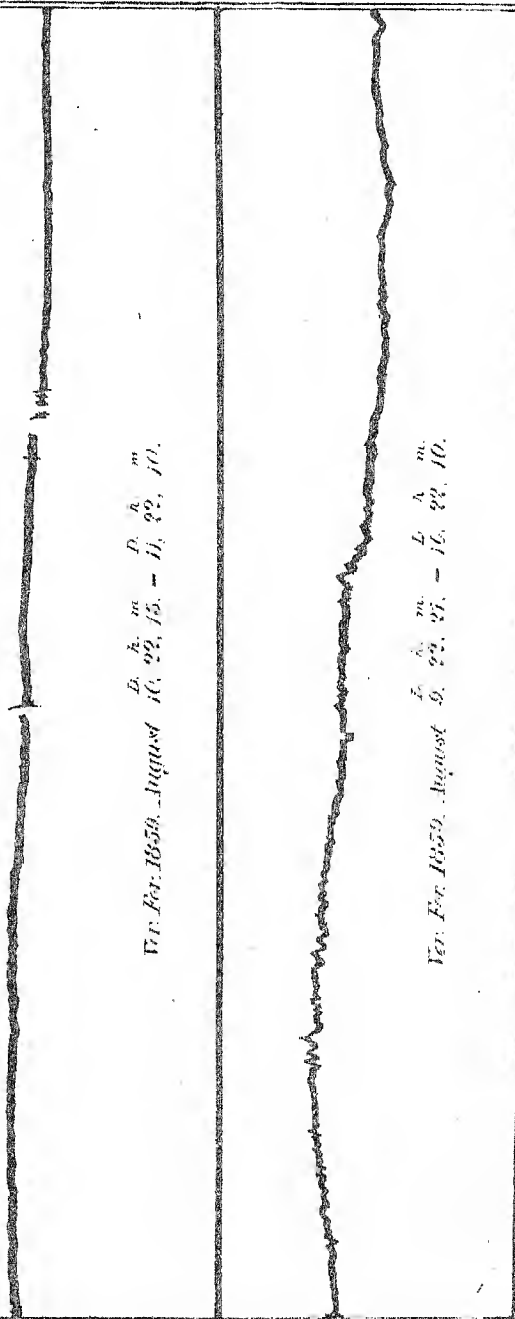 D. h. m D. h. m
Ver. For. 1859. August 10, 22, 15. – 11, 22, 10.
D. h. m. D h m.
Ver. For. 1859. August 9, 22, 27. – 10, 22, 10.